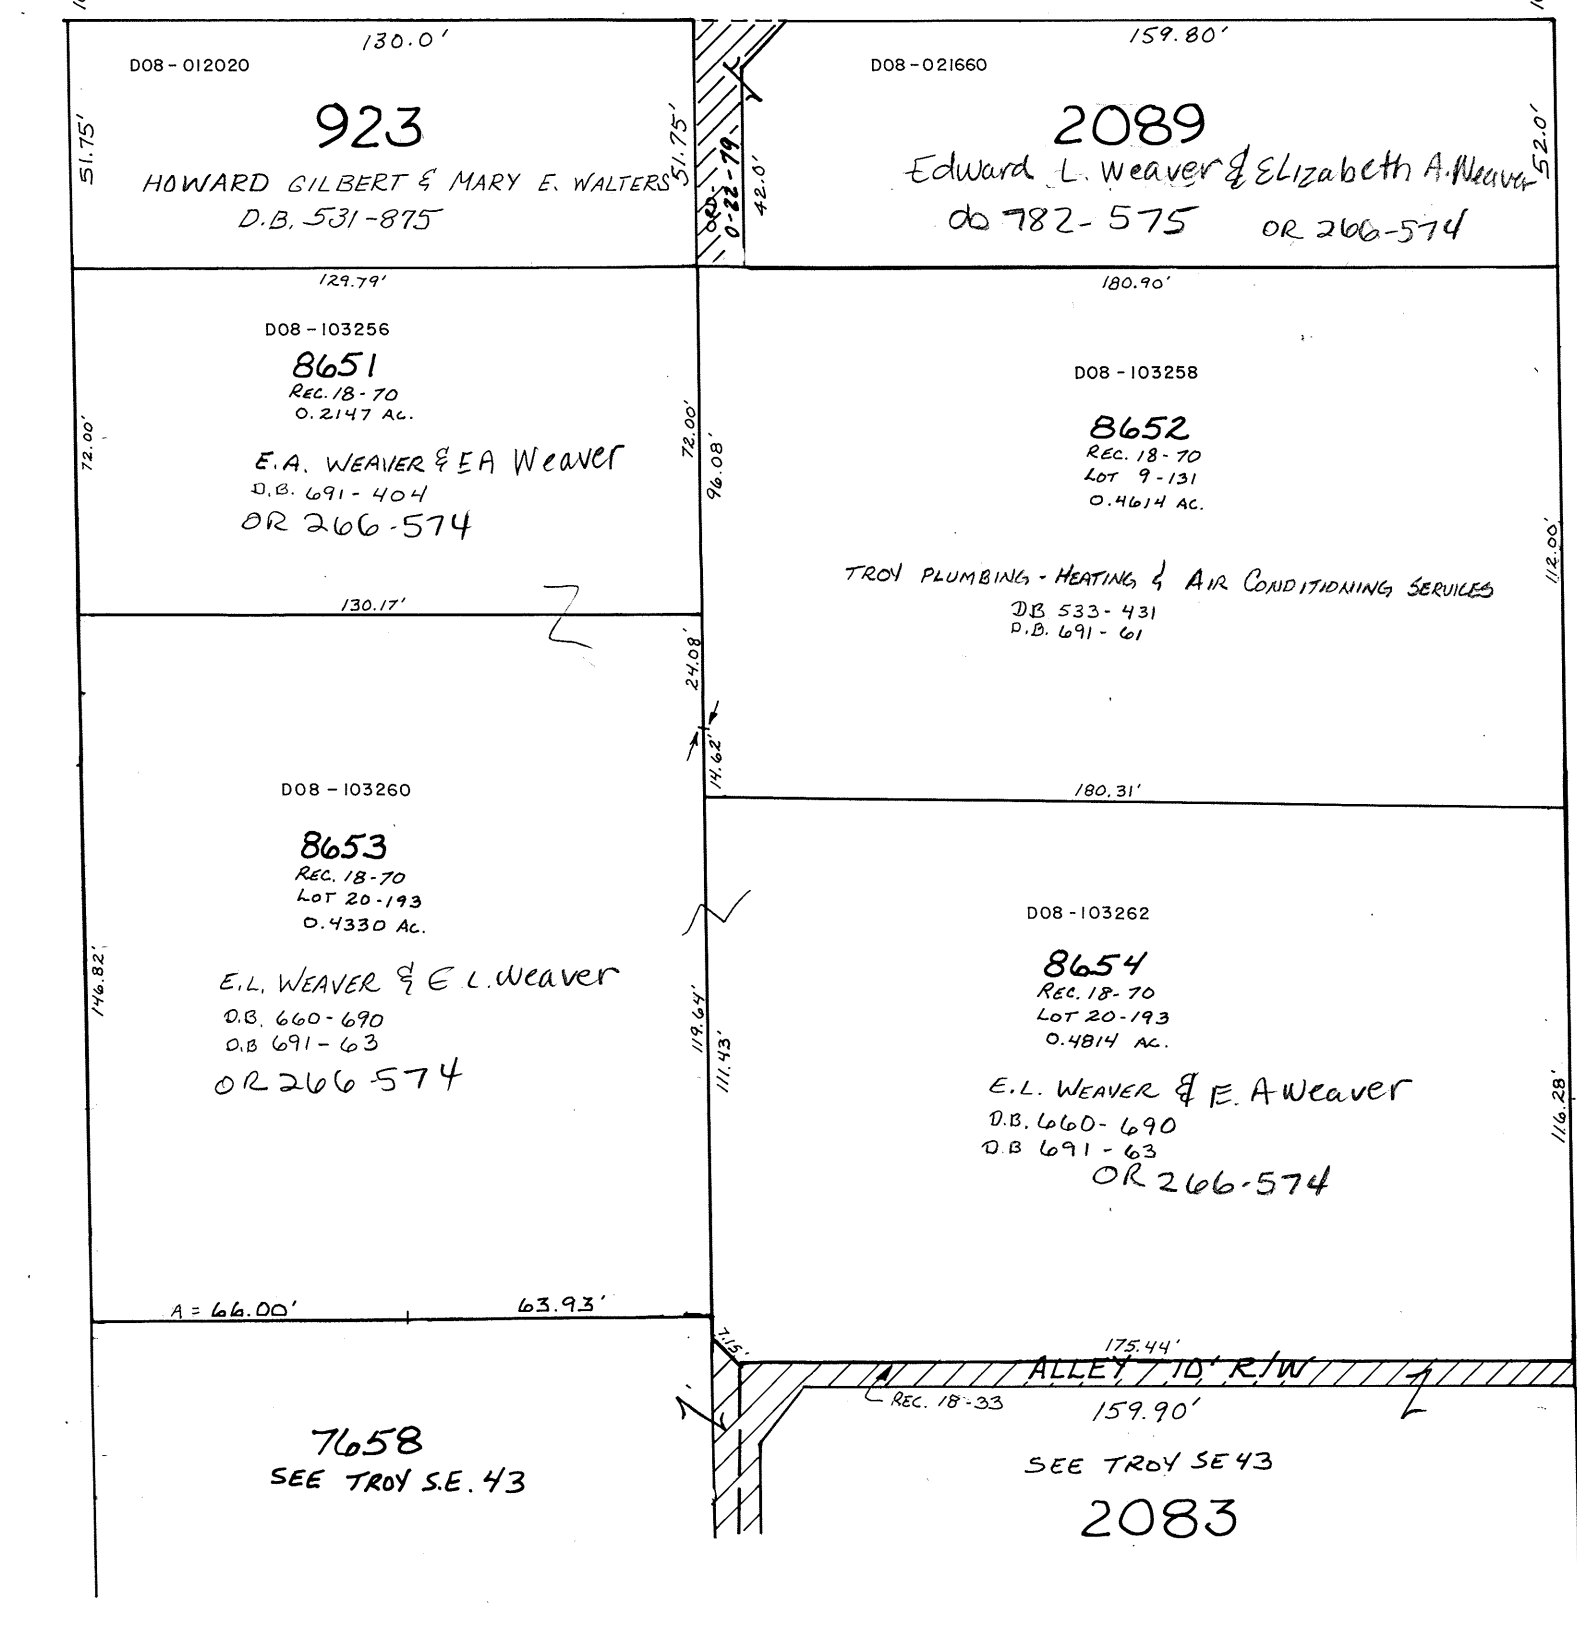 130.0'
D08-012020
923
51.75'
51.75'
HOWARD GILBERT & MARY E. WALTERS
D.B. 531-875
ORD.
0-22-79
42.0'
159.80'
D08-021660
2089
52.0'
Edward L. Weaver & Elizabeth A. Weaver
db 782-575 OR 266-574
129.79'
D08-103256
8651
REC. 18-70
0.2147 AC.
72.00'
72.00'
E.A. WEAVER & EA Weaver
D.B. 691-404
OR 266-574
130.17'
180.90'
D08-103258
8652
REC. 18-70
LOT 9-131
0.4614 AC.
96.08'
112.00'
TROY PLUMBING - HEATING & AIR CONDITIONING SERVICES
DB 533-431
D.B. 691-61
24.08'
14.62'
180.31'
D08-103260
8653
REC. 18-70
LOT 20-193
0.4330 AC.
146.82'
E.L. WEAVER & E L. Weaver
D.B. 660-690
D.B 691-63
OR 266-574
119.64'
111.43'
A = 66.00'
63.93'
D08-103262
8654
REC. 18-70
LOT 20-193
0.4814 AC.
E.L. WEAVER & E. A Weaver
D.B. 660-690
D.B 691-63
OR 266-574
116.28'
7.15'
175.44'
ALLEY 10' R/W
REC. 18-33
159.90'
7658
SEE TROY S.E. 43
SEE TROY SE 43
2083